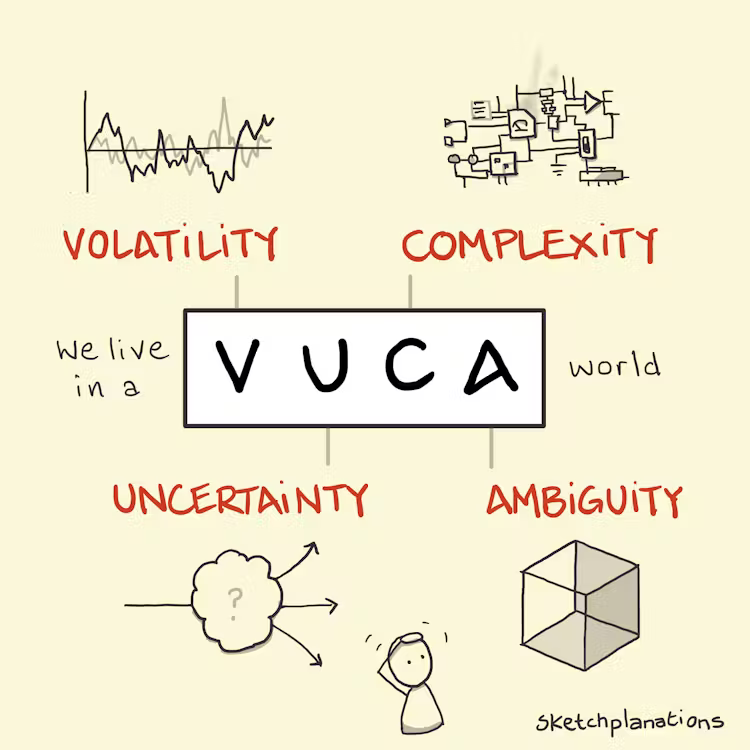 VOLATILITY
COMPLEXITY
We live
in a
VUCA
world
UNCERTAINTY
AMBIGUITY
?
sketchplanations